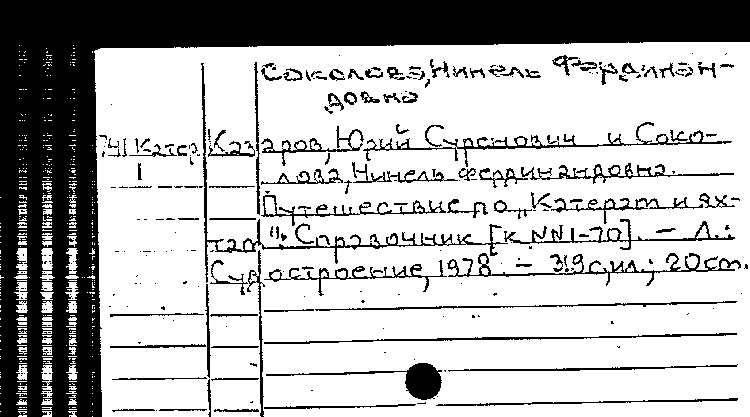 Соколова, Нинель Фердинан-
довна
741 Катер Казаров, Юрий Суренович и Соко-
1 лова, Нинель Фердинандовна.
Путешествие по „Катерам и ях-
там“. Справочник [к NN1-70]. – Л.:
Судостроение, 1978. – 319с, ил.; 20см.